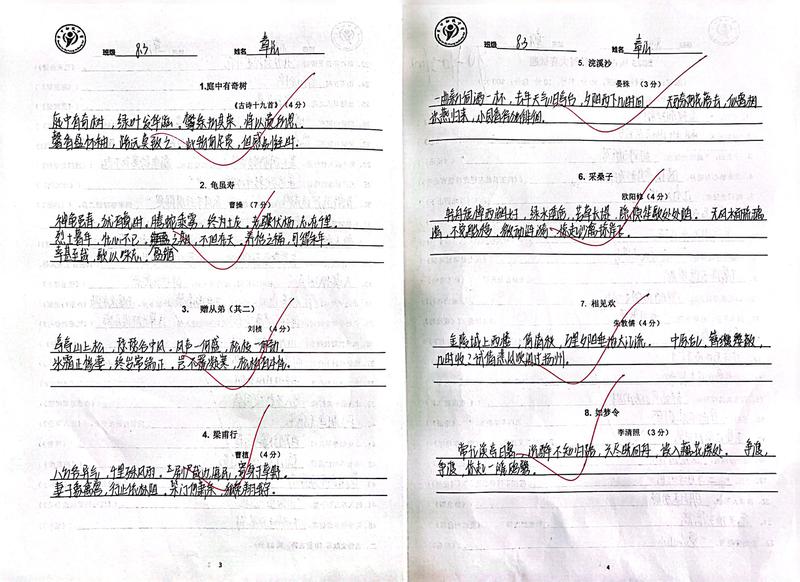 班级 8.3 姓名
1.庭中有奇树
《古诗十九首》(4分)
庭中有奇树，绿叶发华滋。攀条折其荣，将以遗所思。
馨香盈怀袖，路远莫致之。此物何足贵，但感别经时。
2. 龟虽寿
曹操 (7分)
神龟虽寿，犹有竟时。腾蛇乘雾，终为土灰。老骥伏枥，志在千里。
烈士暮年，壮心不已。盈缩之期，不但在天。养怡之福，可得永年。
幸甚至哉，歌以咏志。
3. 赠从弟（其二）
刘桢 (4分)
亭亭山上松，瑟瑟谷中风。风声一何盛，松枝一何劲。
冰霜正惨凄，终岁常端正。岂不罹凝寒，松柏有本性。
4. 梁甫行
曹植 (4分)
八方各异气，千里殊风雨。剧哉边海民，寄身于草野。
妻子象禽兽，行止依林阻。柴门何萧条，狐兔翔我宇。
3
班级 8.3 姓名
5. 浣溪沙
晏殊 (3分)
一曲新词酒一杯，去年天气旧亭台。夕阳西下几时回。 无可奈何花落去，似曾相
识燕归来。小园香径独徘徊。
6. 采桑子
欧阳修 (4分)
轻舟短棹西湖好，绿水逶迤，芳草长堤，隐隐笙歌处处随。 无风水面琉璃
滑，不觉船移，微动涟漪，惊起沙禽掠岸飞。
7. 相见欢
朱敦儒 (4分)
金陵城上西楼，倚清秋，万里夕阳垂地大江流。 中原乱，簪缨散，
几时收？试倩悲风吹泪过扬州。
8. 如梦令
李清照 (3分)
常记溪亭日暮，沉醉不知归路，兴尽晚回舟，误入藕花深处。 争渡，
争渡，惊起一滩鸥鹭。
4